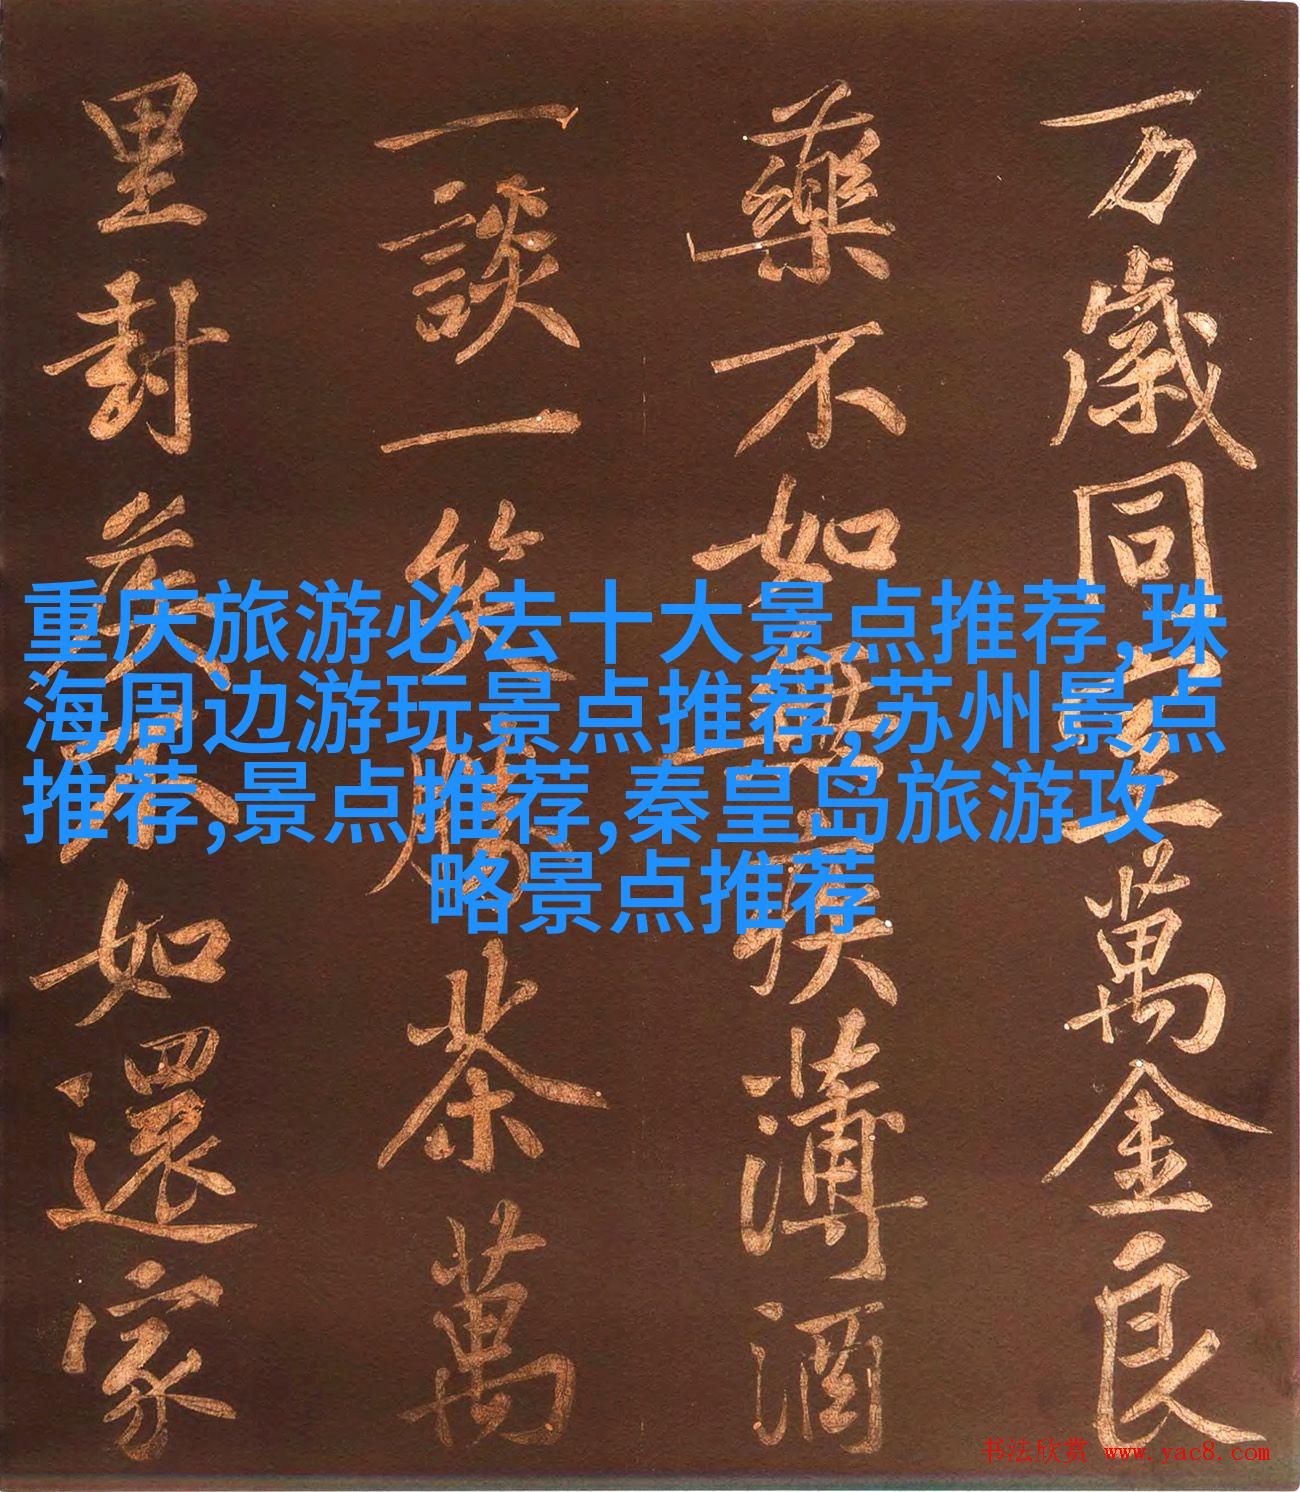 重庆旅游必去十大景点推荐,珠
海周边游玩景点推荐,苏州景点
推荐,景点推荐,秦皇岛旅游攻
略景点推荐
万歲同室萬金良
藥不如無疾薄酒
一談一笑勝茶萬
里封侯不如還家
书法欣赏 www.yac8.com